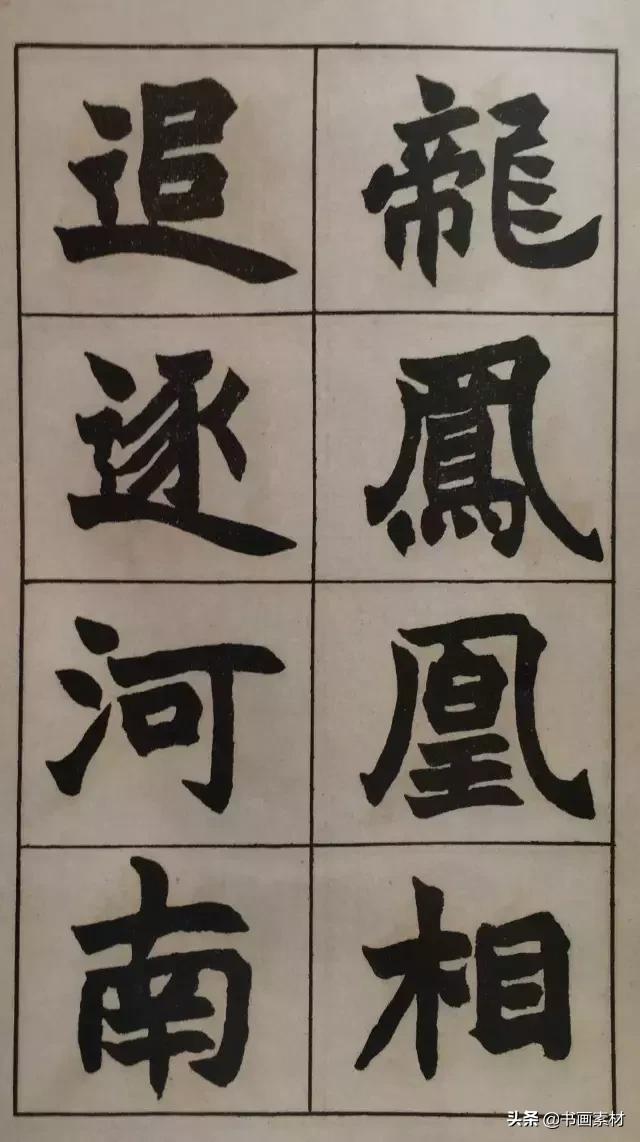 龍鳳凰相
追逐河南
头条 @书画素材